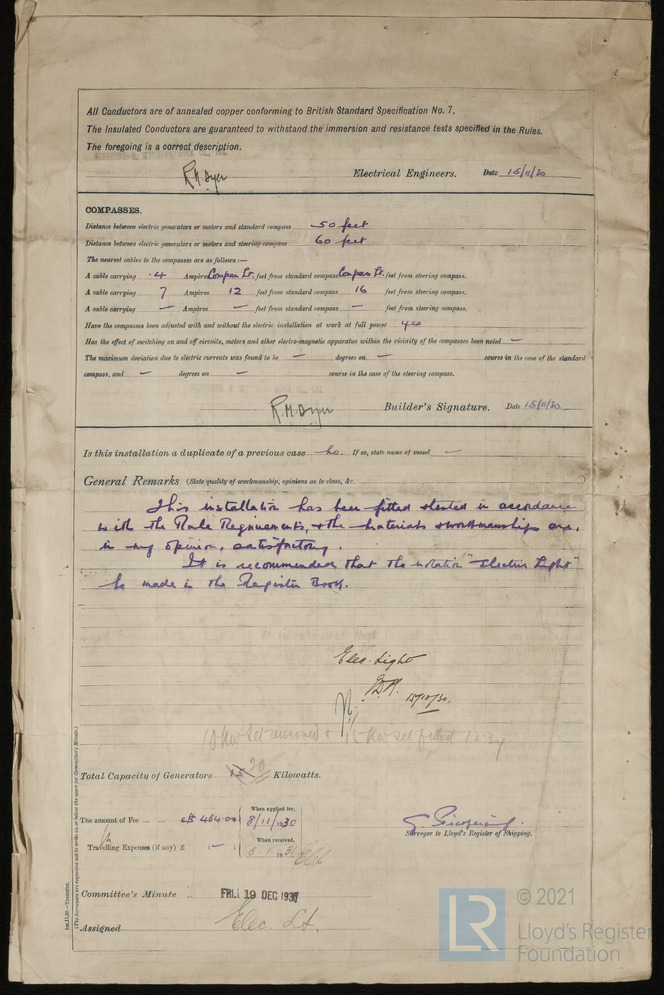 All Conductors are of annealed copper conforming to British Standard Specification No. 7.
The Insulated Conductors are guaranteed to withstand the immersion and resistance tests specified in the Rules.
The foregoing is a correct description.
R.M. Dyer Electrical Engineers. Date 15/11/30
COMPASSES.
Distance between electric generators or motors and standard compass 50 feet
Distance between electric generators or motors and steering compass 60 feet
The nearest cables to the compasses are as follows:—
A cable carrying .4 Ampères Compass Lt. feet from standard compass Compass Lt. feet from steering compass.
A cable carrying 7 Ampères 12 feet from standard compass 16 feet from steering compass.
A cable carrying — Ampères — feet from standard compass — feet from steering compass.
Have the compasses been adjusted with and without the electric installation at work at full power yes
Has the effect of switching on and off circuits, motors and other electro-magnetic apparatus within the vicinity of the compasses been noted —
The maximum deviation due to electric currents was found to be — degrees on — course in the case of the standard
compass, and — degrees on — course in the case of the steering compass.
R.M. Dyer Builder's Signature. Date 15/11/30
Is this installation a duplicate of a previous case no. If so, state name of vessel —
General Remarks (State quality of workmanship, opinions as to class, &c.
This installation has been fitted & tested in accordance
with the Rule Requirements, & the materials & workmanship are,
in my opinion, satisfactory.
It is recommended that the notation "Electric Light"
be made in the Register Book.
Elec. Light
10 Kw set removed & 15 Kw set fitted
Total Capacity of Generators 15 20 Kilowatts.
The amount of Fee ... ... 464.00 When applied for, 8/11/30
Travelling Expenses (if any) £ : — : When received,
Surveyor to Lloyd's Register of Shipping.
Committee's Minute FRI. 19 DEC 193
Assigned Elec. Lt.
(The Surveyors are requested not to write on or below the space for Committee's Minute.)
© 2021
LR
Lloyd's Register
Foundation